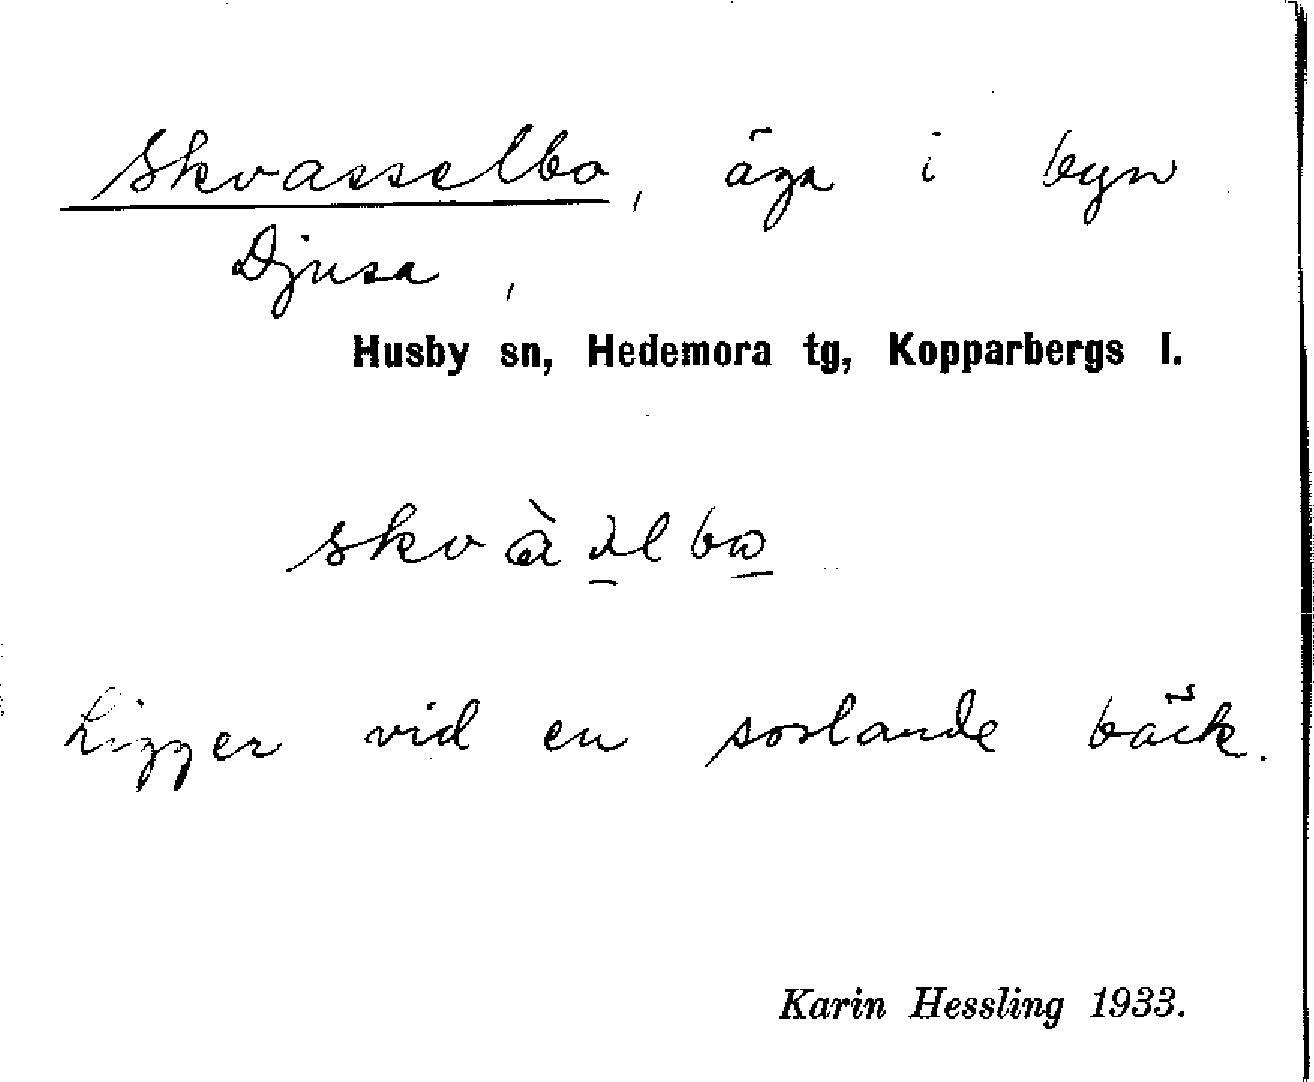 Skvasselbo, äga i byn
Djusa,
Husby sn, Hedemora tg, Kopparbergs l.
Ligger vid en sorlande bäck.
Karin Hessling 1933.